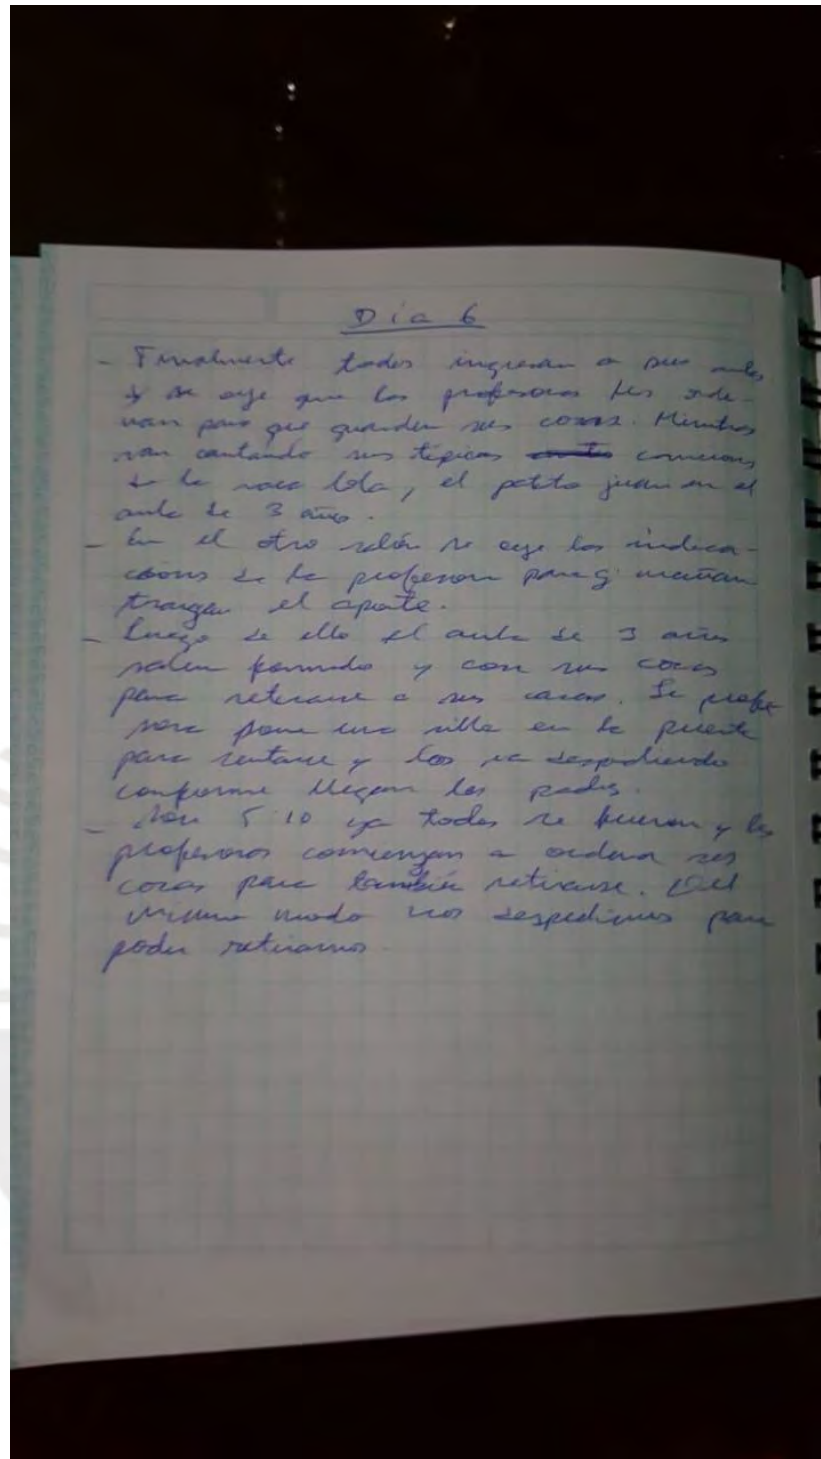 Día 6
- Finalmente todos ingresan a sus aulas
y se oye que las profesoras les orde-
nan para que guarden sus cosas. Mientras
van cantando sus típicas canciones
de la vaca lola, el patito juan en el
aula de 3 años.
- En el otro salón se oye las indica-
ciones de la profesora para q' mañana
traigan el aporte.
- Luego de ello el aula de 3 años
salen formando y con sus cosas
para retirarse a sus casas. La profe
sora pone una silla en la puerta
para sentarse y los va despidiendo
conforme llegan los padres.
- Son 5:10 ya todos se fueron y las
profesoras comienzan a ordenar sus
cosas para también retirarse. Del
mismo modo nos despedimos para
poder retirarnos.